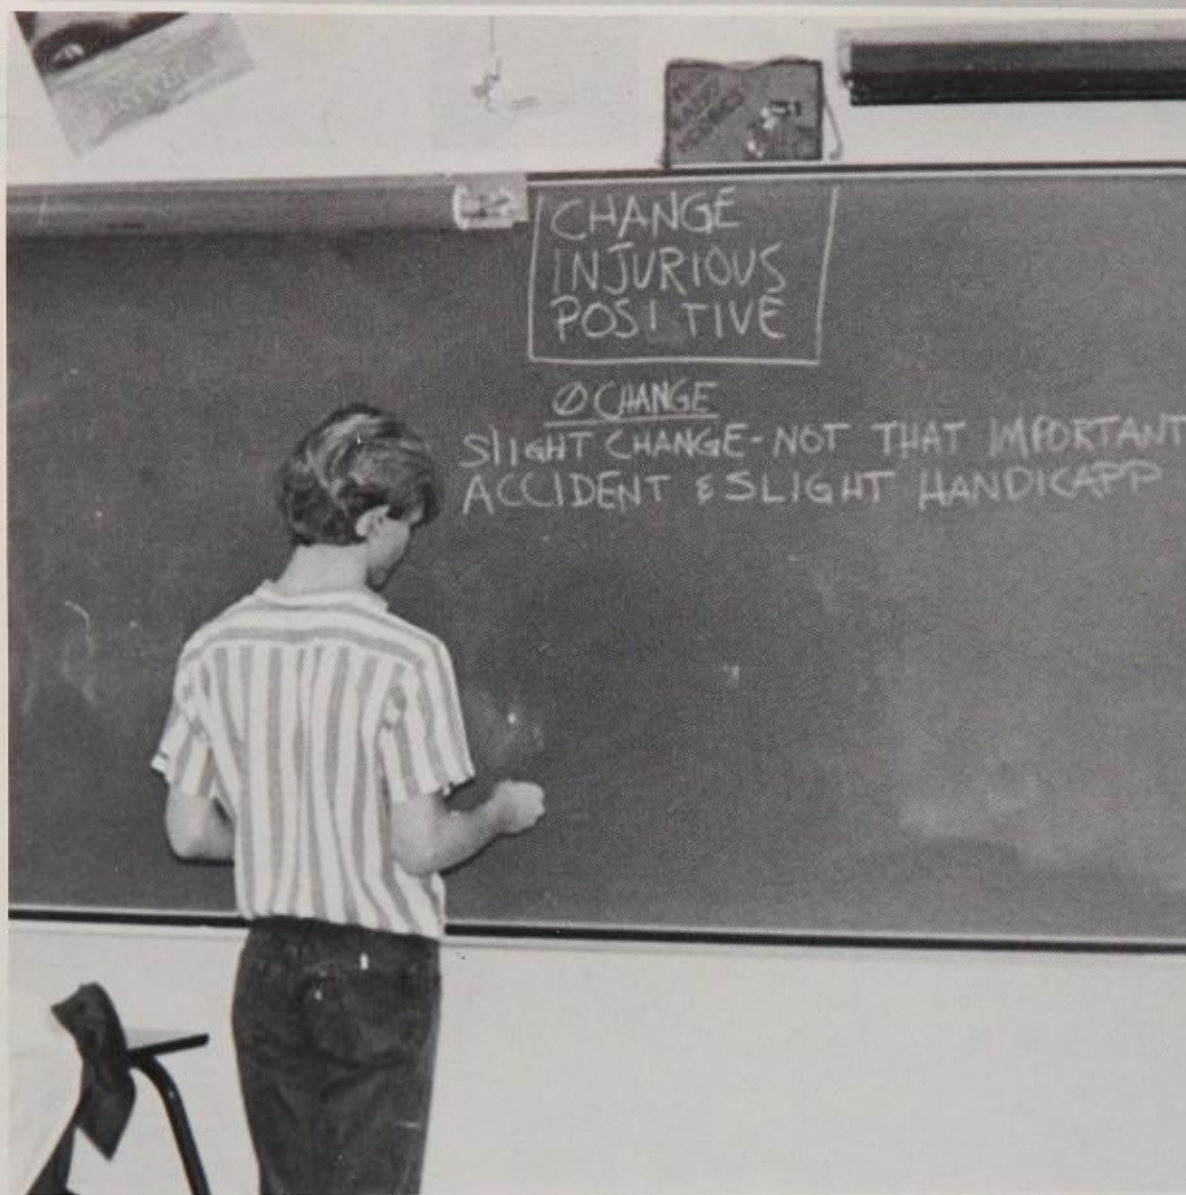 CHANGE
INJURIOUS
POSITIVE
Ø CHANGE
SlIGHT CHANGE - NOT THAT IMPORTANT
ACCIDENT & SLIGHT HANDICAPP